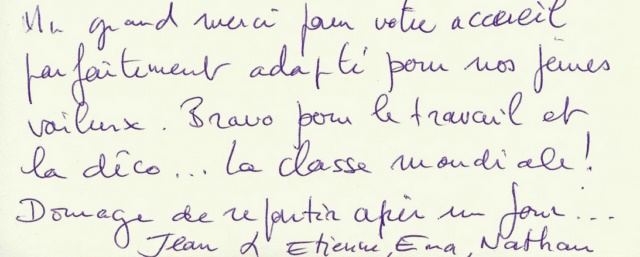 Un grand merci pour votre accueil
parfaitement adapté pour nos jeunes
vailurx. Bravo pour le travail et
la déco... La classe mondiale!
Domage de repartir après un jour...
Jean & Etienne, Ema, Nathan